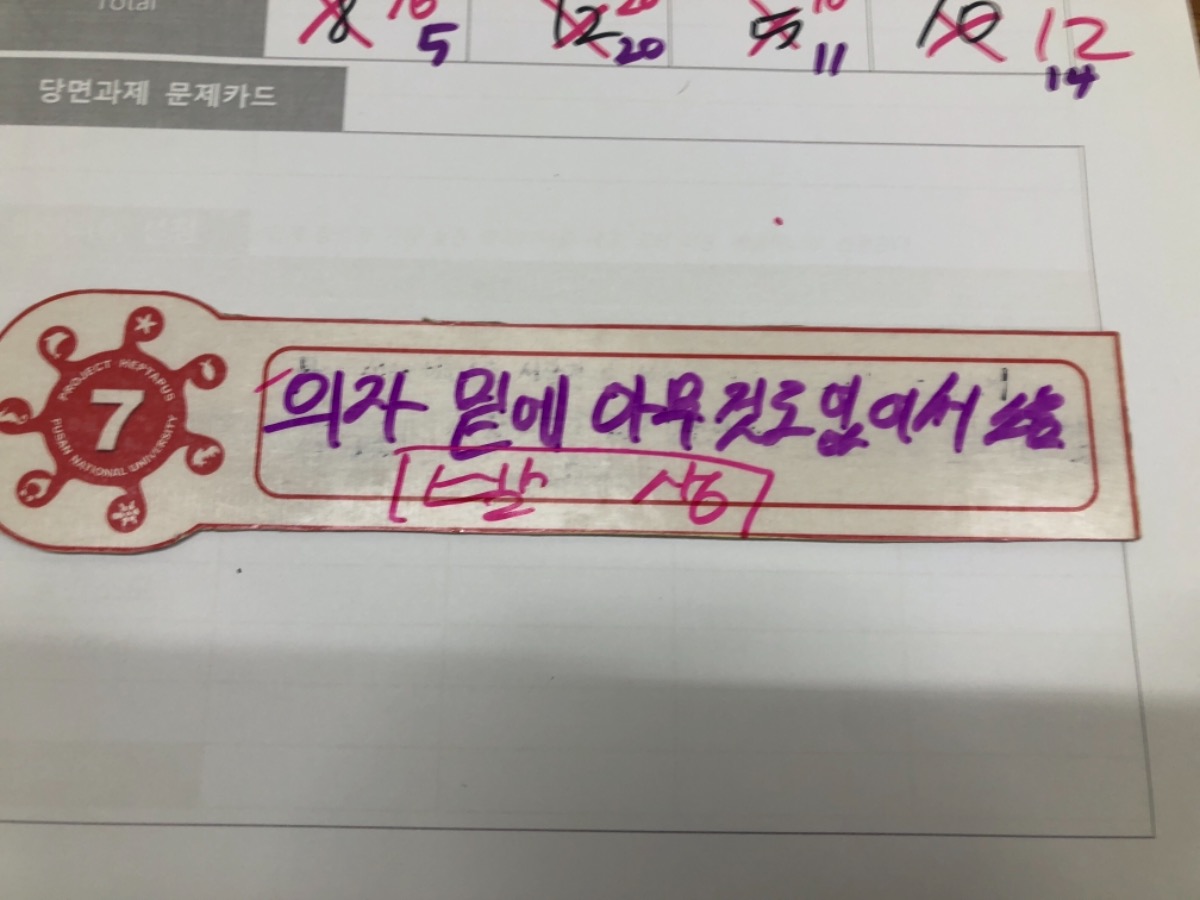 Total
8 16 12 20 5 10 10 12
5 20 11 14
당면과제 문제카드
PROJECT HEPTAPUS
7
PUSAN NATIONAL UNIVERSITY
의자 밑에 아무것도 없어서
발 상